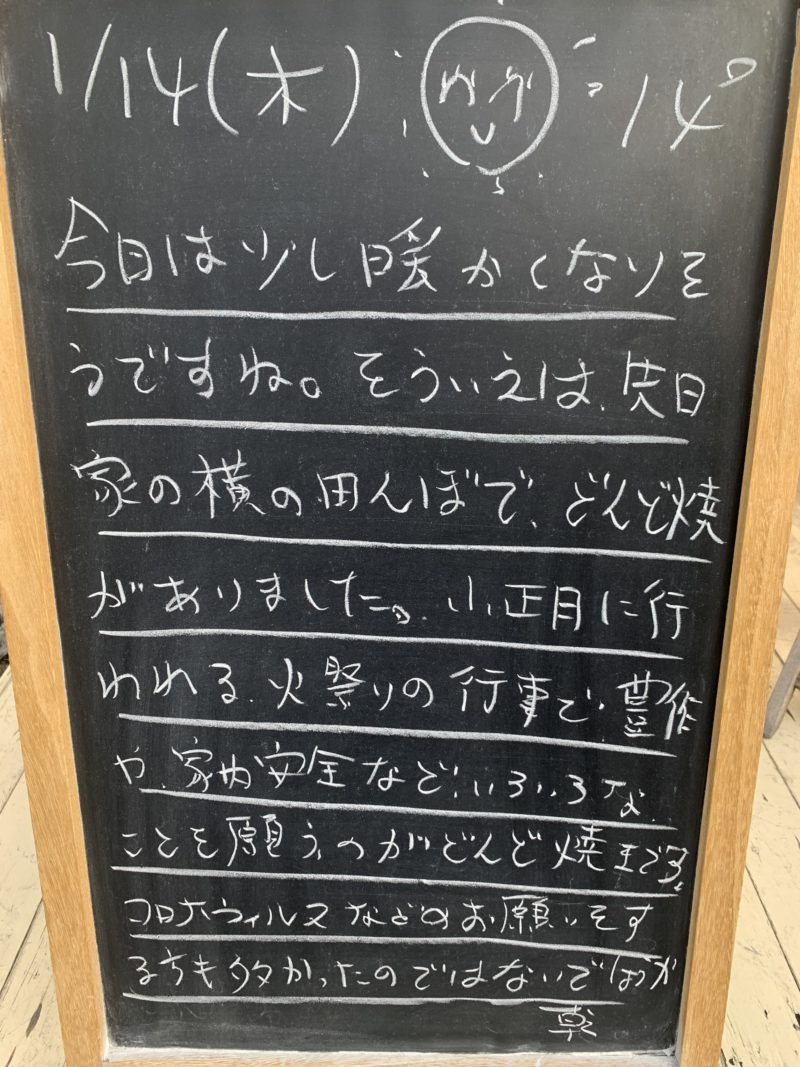 1/14(木) 14°
今日は少し暖かくなりそ
うですね。そういえば、先日
家の横の田んぼで、どんど焼
がありました。小正月に行
われる、火祭りの行事で、豊作
や、家内安全など、いろいろな
ことを願う、のがどんど焼きです。
コロナウィルスなどのお願いをす
る方も多かったのではないで